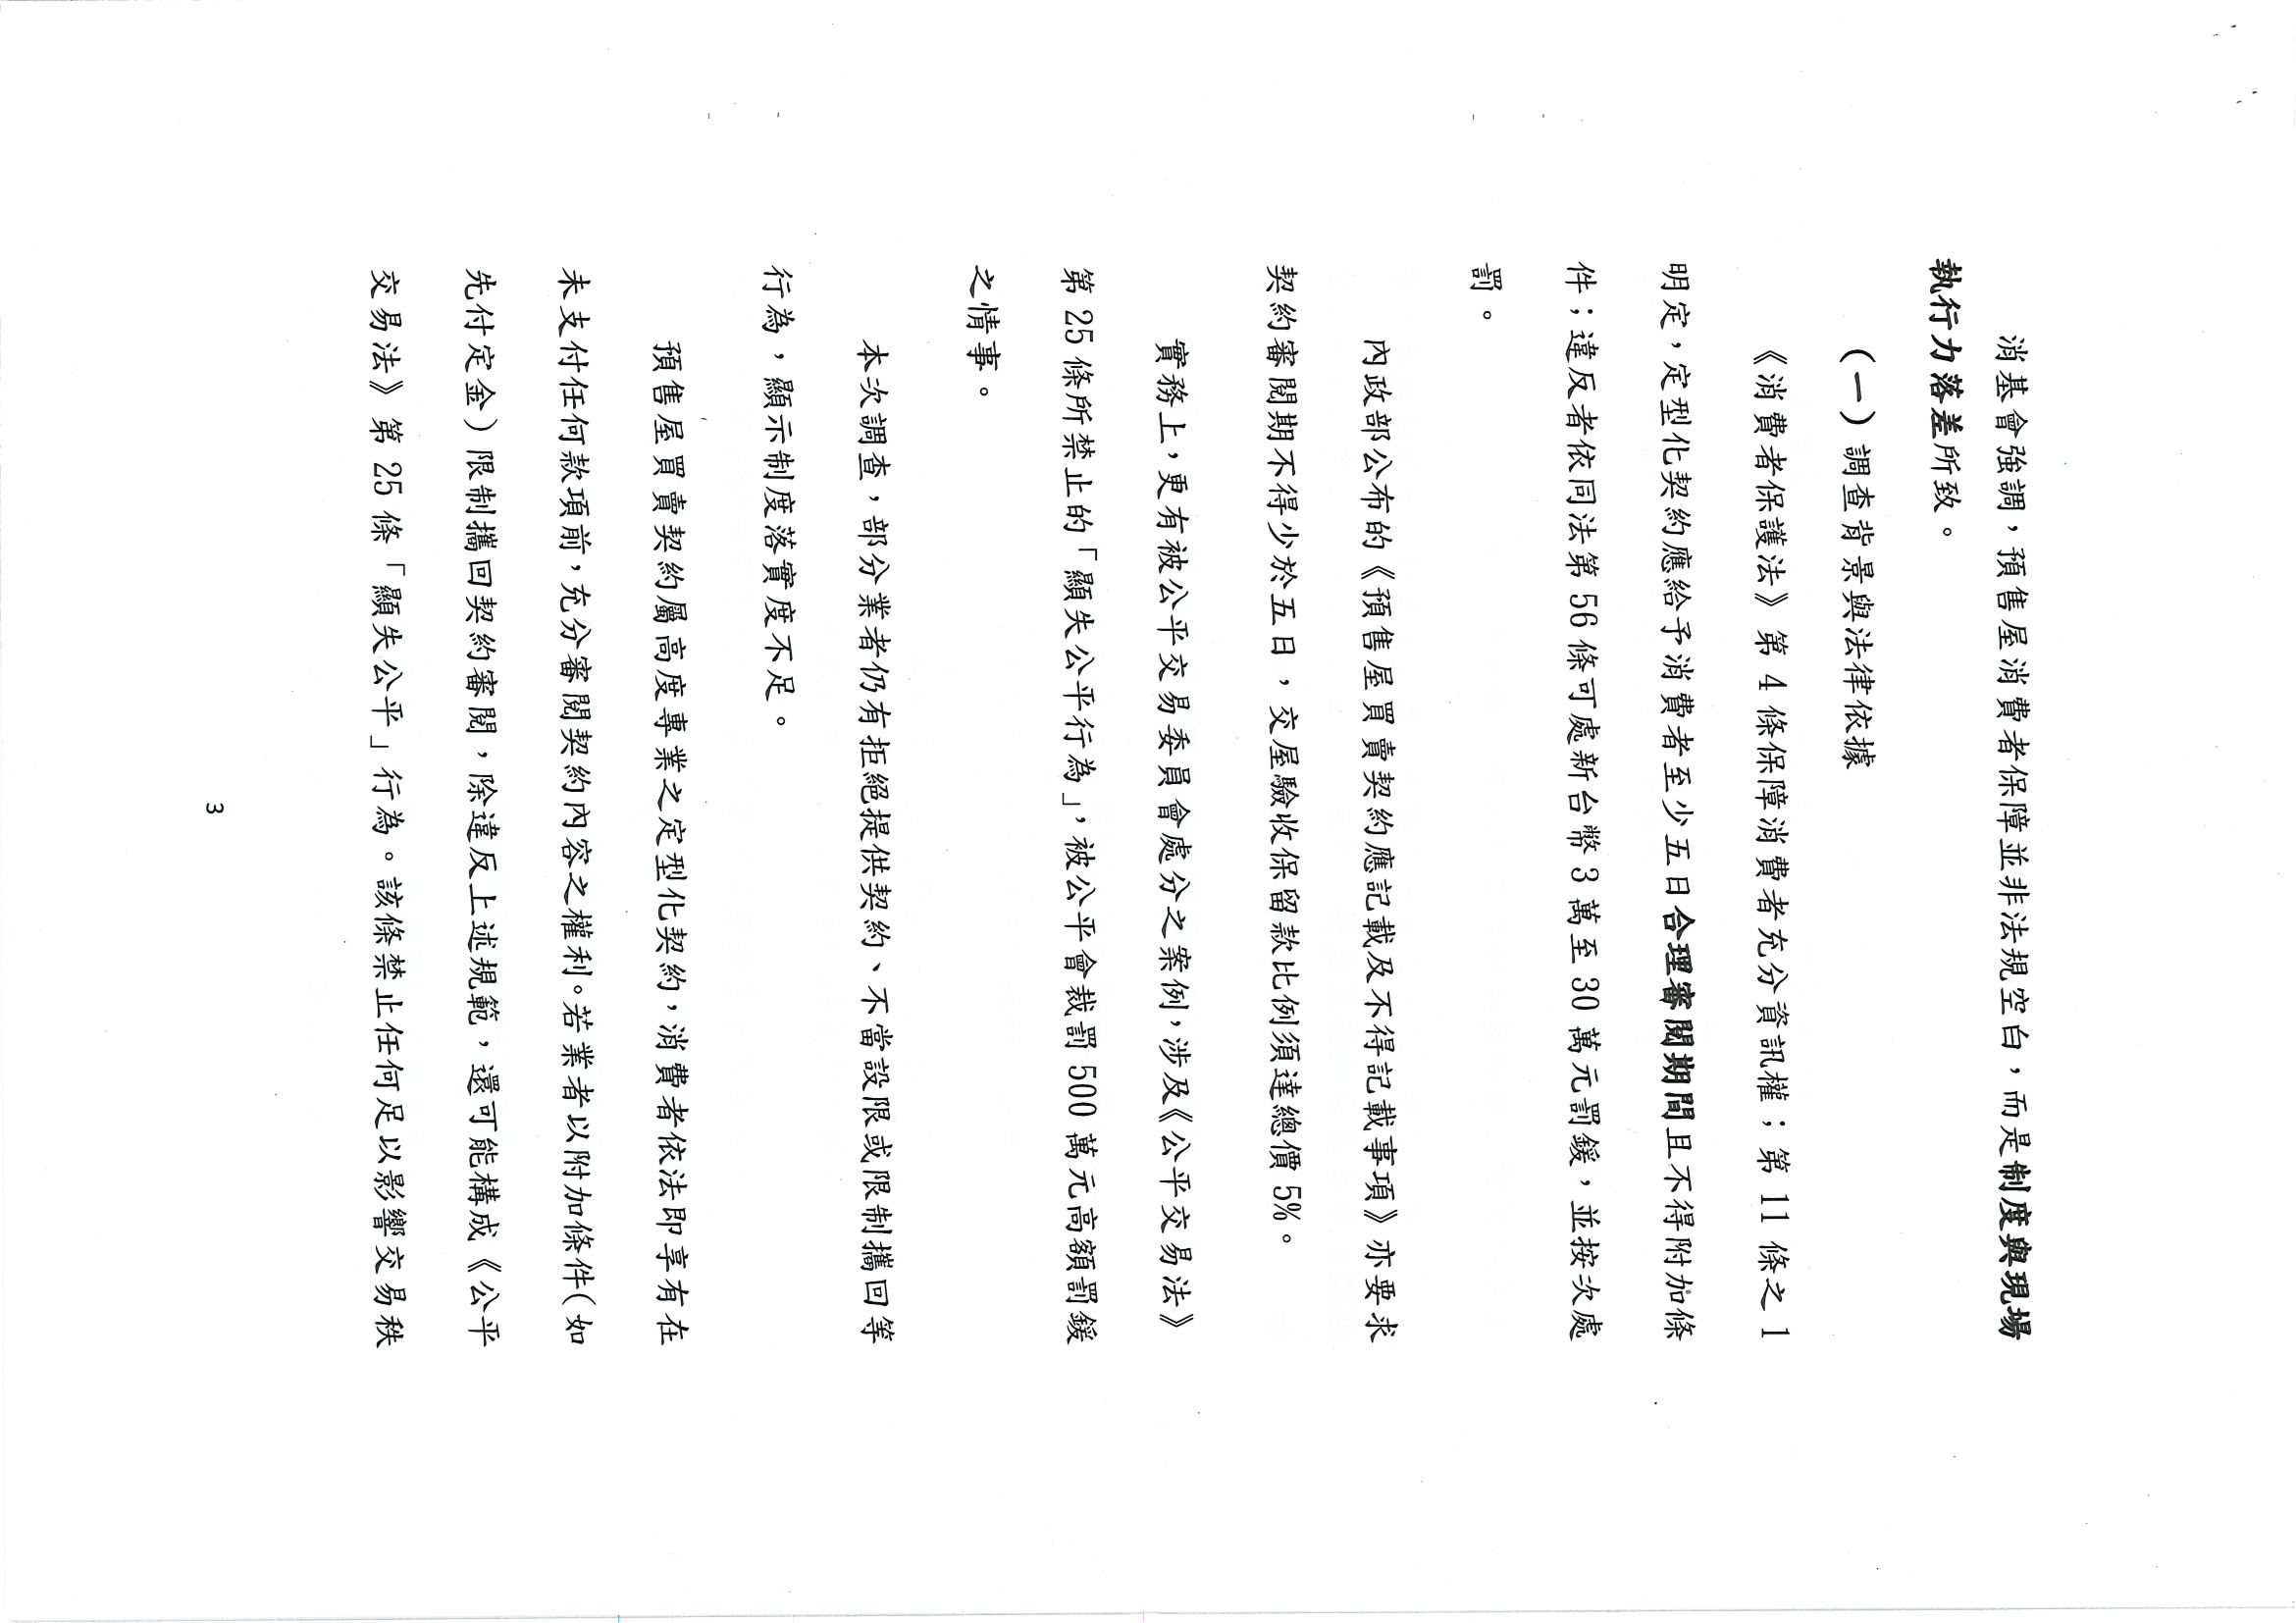 消基會強調，預售屋消費者保障並非法規空白，而是制度與現場
執行力落差所致。
（一）調查背景與法律依據
《消費者保護法》第 4 條保障消費者充分資訊權；第 11 條之 1
明定，定型化契約應給予消費者至少五日合理審閱期間且不得附加條
件；違反者依同法第 56 條可處新台幣 3 萬至 30 萬元罰鍰，並按次處
罰。
內政部公布的《預售屋買賣契約應記載及不得記載事項》亦要求
契約審閱期不得少於五日，交屋驗收保留款比例須達總價 5%。
實務上，更有被公平交易委員會處分之案例，涉及《公平交易法》
第 25 條所禁止的「顯失公平行為」，被公平會裁罰 500 萬元高額罰鍰
之情事。
本次調查，部分業者仍有拒絕提供契約、不當設限或限制攜回等
行為，顯示制度落實度不足。
預售屋買賣契約屬高度專業之定型化契約，消費者依法即享有在
未支付任何款項前，充分審閱契約內容之權利。若業者以附加條件(如
先付定金）限制攜回契約審閱，除違反上述規範，還可能構成《公平
交易法》第 25 條「顯失公平」行為。該條禁止任何足以影響交易秩
3